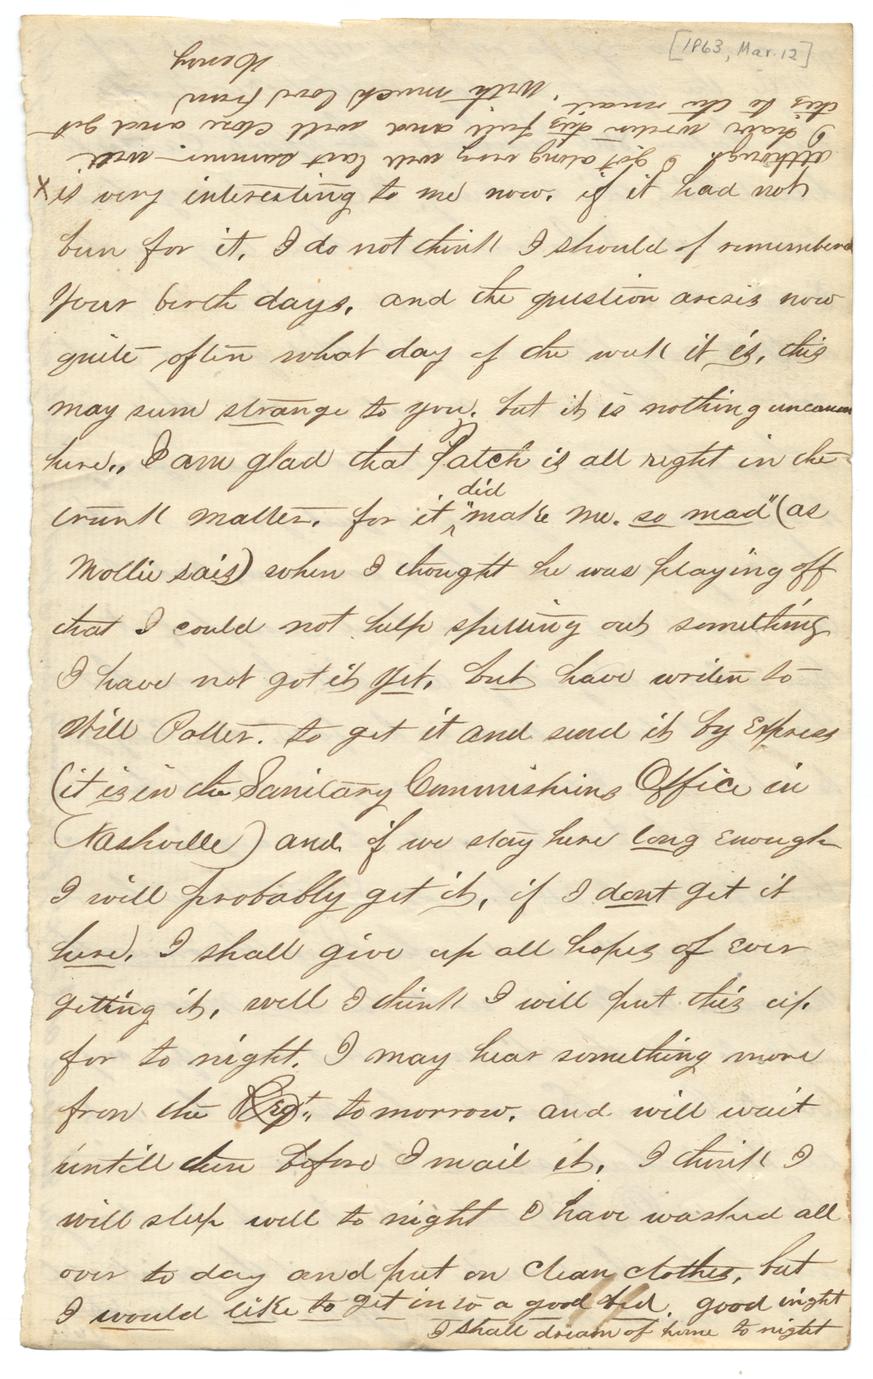 [1863, Mar. 12]
X is very interesting to me now. if it had not
been for it, I do not think I should of remembered
Your birth days, and the question arises now
quite often what day of the week it is, this
may seem strange to you. but it is nothing uncommon
here,, I am glad that Patch is all right in the
trunk matter. for it did "make me. so mad" (as
Mollie said) when I thought he was playing off
that I could not help spitting out something
I have not got it yet. but have writen to
Will Potter. to get it and send it by Express
(it is in the Sanitary Commishions Office in
Nashville) and if we stay here long enough
I will probably get it, if I dont get it
here, I shall give up all hopes of ever
getting it, well I think I will put this up.
for to night. I may hear something more
from the Regt., tomorrow. and will wait
untill then before I mail it. I think I
will sleep well to night I have washed all
over to day and put on clean clothes, but
I would like to get in to a good bed. good night
I shall dream of home to night
although I got along very well last summer. well
I have writen this full and will close and get
this to the mail. With much love from
Henry